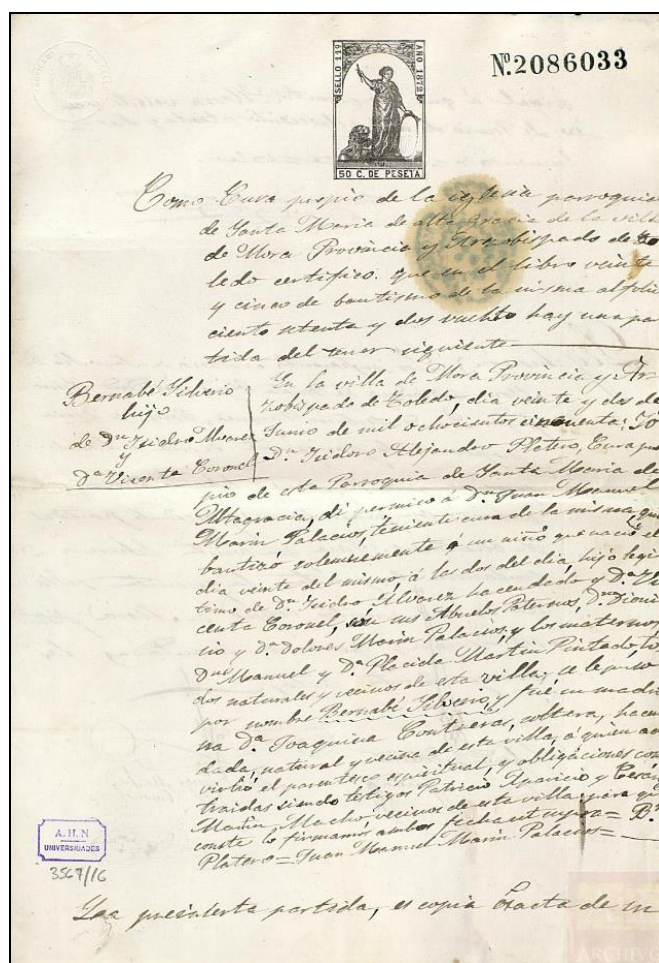 SELLO 11º AÑO 1872
50 C. DE PESETA
Nº. 2086033
Como Cura propio de la iglesia parroquia
de Santa Maria de alta Gracia de la villa
de Mora Provincia y Arzobispado de To
ledo certifico que en el libro veinte
y cinco de bautismo de la misma al folio
ciento setenta y dos vuelto hay una par
tida del tenor siguiente
Bernabé Silverio
hijo
de Dn Isidro Alvarez
y
Da Vicenta Coronel
En la villa de Mora Provincia y Ar-
zobispado de Toledo, dia veinte y dos de
Junio de mil ochocientos cincuenta: Yo
Dn Isidoro Alejandro Platero, Cura pro
pio de esta Parroquia de Santa Maria de
Altagracia, di permiso á Dn Juan Manuel
Marin Palacios, teniente cura de la misma que
bautizó solemnemente á un niño que nació el
dia veinte del mismo, á las dos del dia, hijo legi
timo de Dn Isidro Alvarez hacendado y Da Vi
centa Coronel, sus Abuelos Paternos, Dn Dioni
cio y Da Dolores Marin Palacios, y los maternos
Dn Manuel y Da Placida Martin Pintado, to
dos naturales y vecinos de esta villa, se le puso
por nombre Bernabé Silverio, y fué su madri
na Da Joaquina Contreras, soltera, hacen
dada, natural y vecina de esta villa, á quien ad
virtió el parentesco espiritual, y obligaciones con
traidas siendo testigos Patricio Aparicio y
Martin Macho, vecinos de esta villa: y para que
conste lo firmamos ambos fecha ut supra =
Platero = Juan Manuel Marin Palacios =
A. H. N
UNIVERSIDADES
3567/16
partida, es copia Exacta de
ARCHIVO